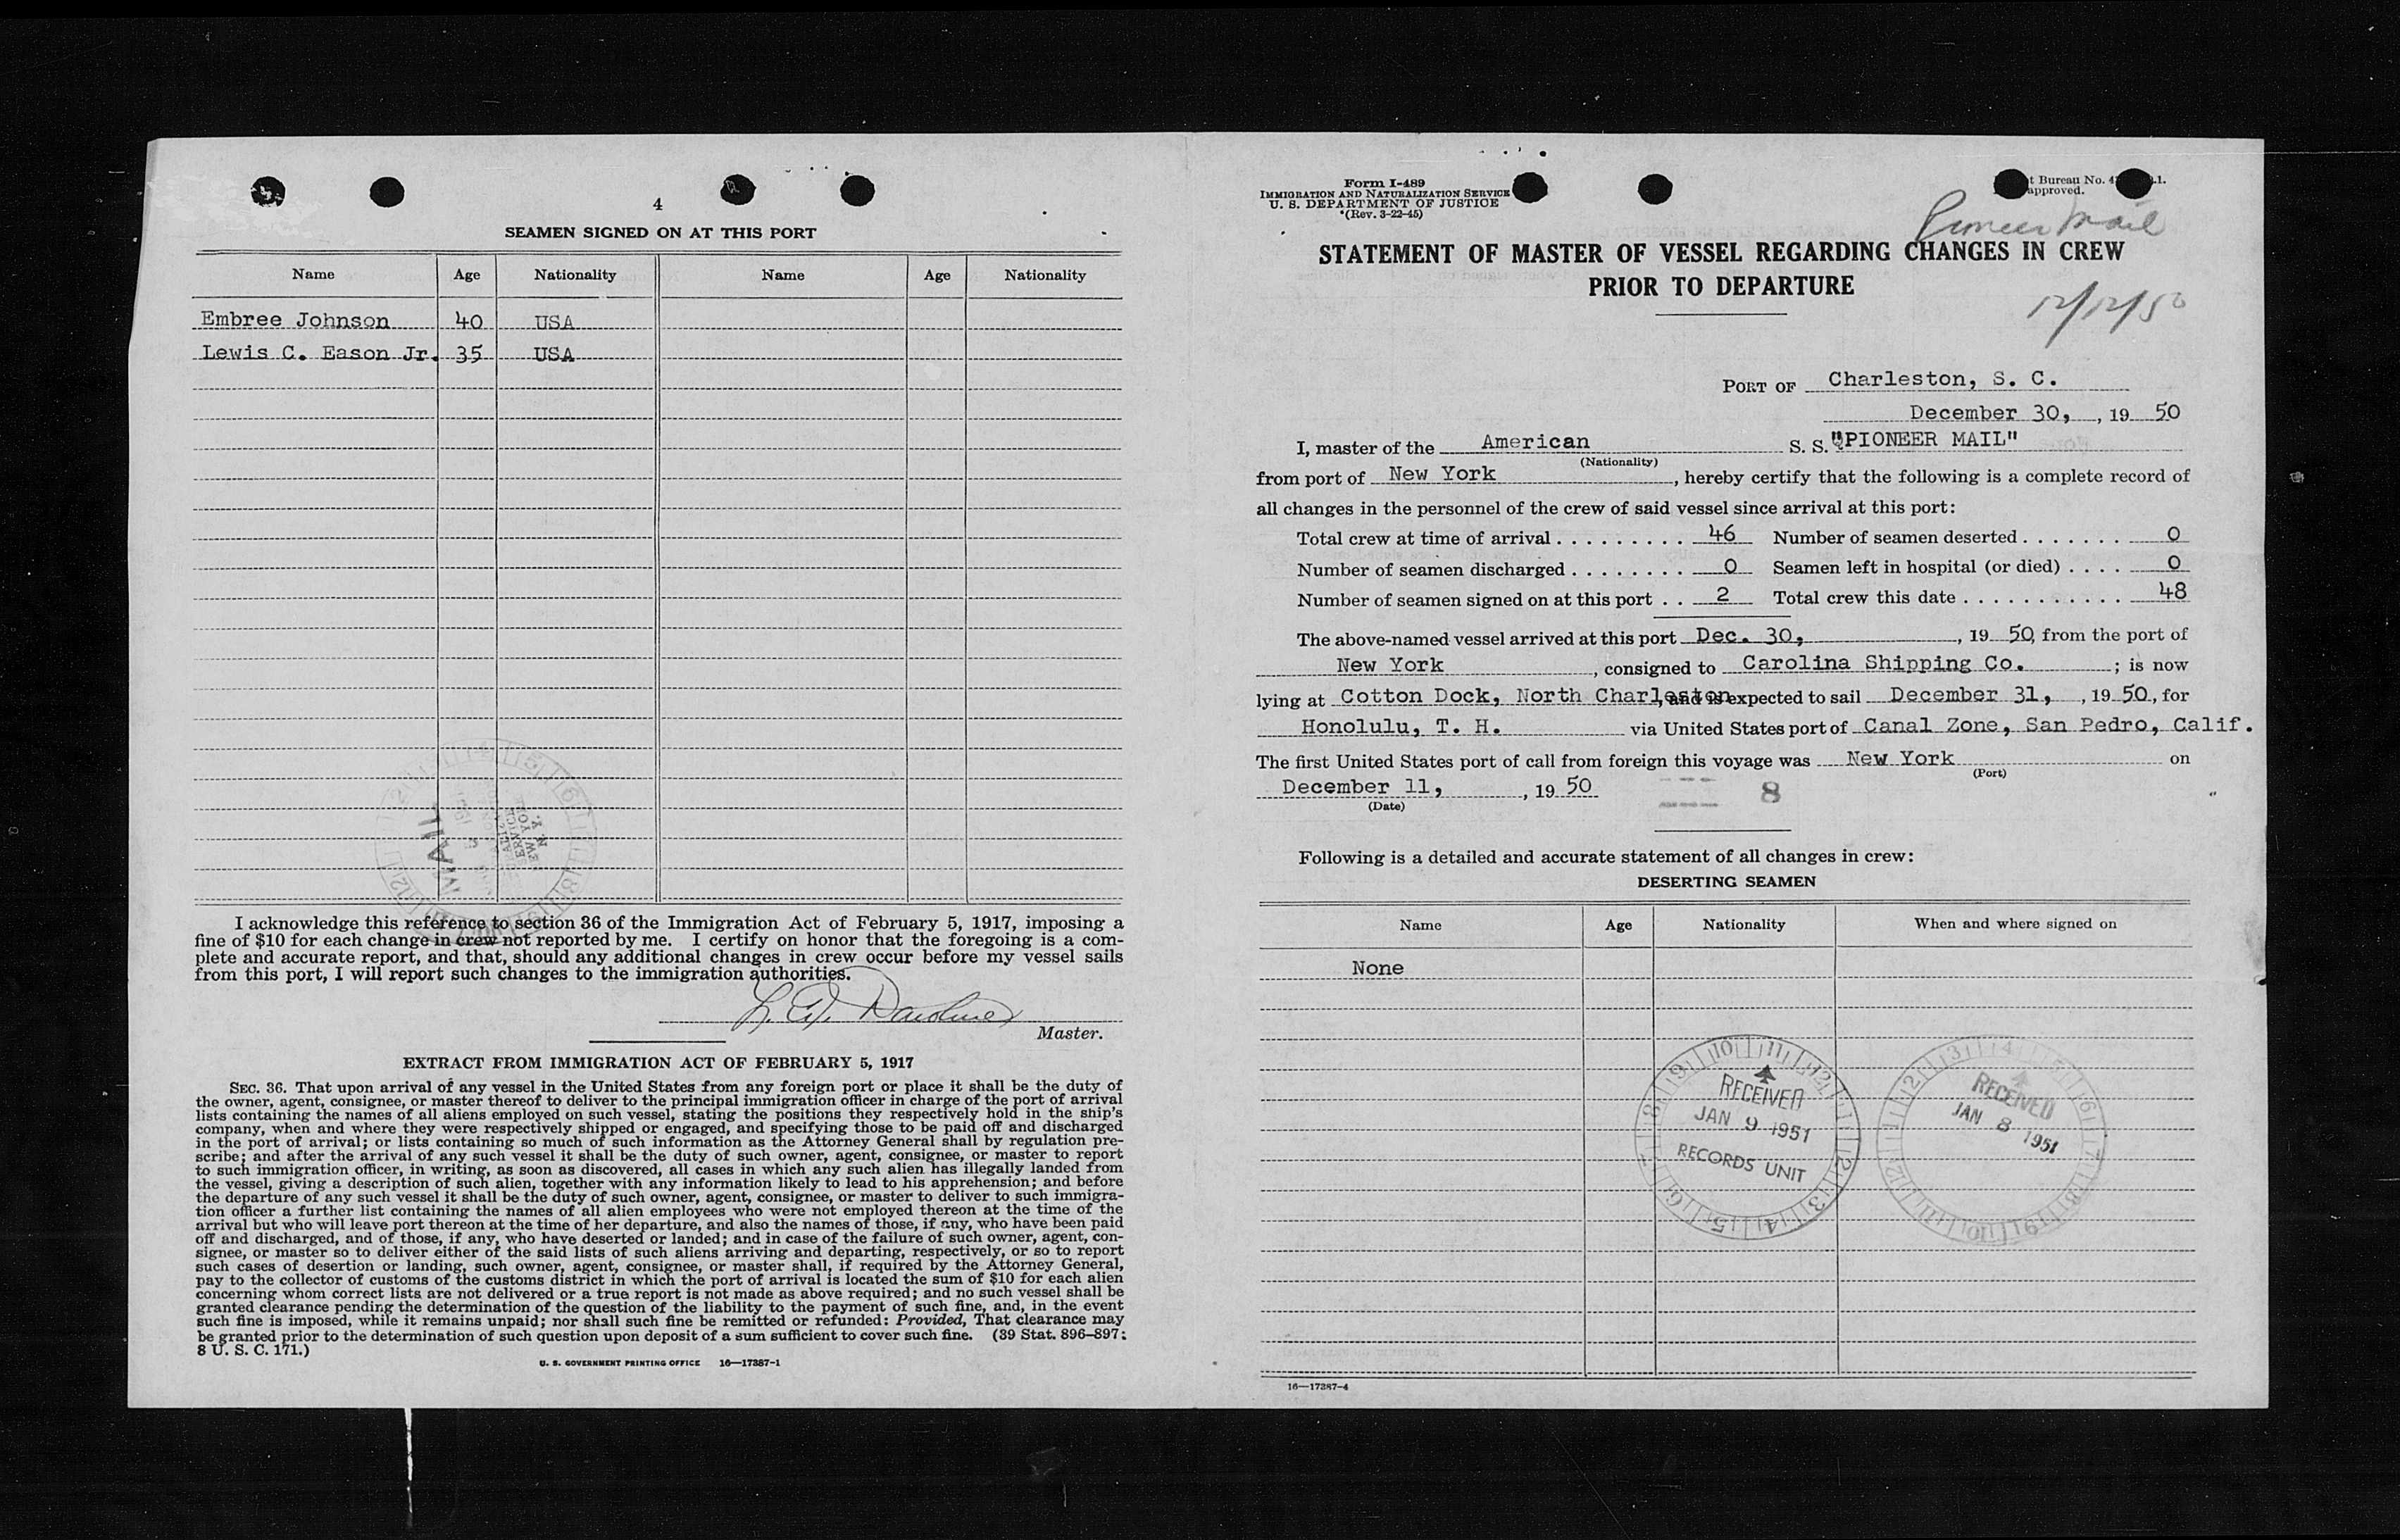 4
SEAMEN SIGNED ON AT THIS PORT
Name Age Nationality Name Age Nationality
Embree Johnson 40 USA
Lewis C. Eason Jr. 35 USA
MAIL
I acknowledge this reference to section 36 of the Immigration Act of February 5, 1917, imposing a
fine of $10 for each change in crew not reported by me. I certify on honor that the foregoing is a com-
plete and accurate report, and that, should any additional changes in crew occur before my vessel sails
from this port, I will report such changes to the immigration authorities.
Master.
EXTRACT FROM IMMIGRATION ACT OF FEBRUARY 5, 1917
SEC. 36. That upon arrival of any vessel in the United States from any foreign port or place it shall be the duty of
the owner, agent, consignee, or master thereof to deliver to the principal immigration officer in charge of the port of arrival
lists containing the names of all aliens employed on such vessel, stating the positions they respectively hold in the ship's
company, when and where they were respectively shipped or engaged, and specifying those to be paid off and discharged
in the port of arrival; or lists containing so much of such information as the Attorney General shall by regulation pre-
scribe; and after the arrival of any such vessel it shall be the duty of such owner, agent, consignee, or master to report
to such immigration officer, in writing, as soon as discovered, all cases in which any such alien has illegally landed from
the vessel, giving a description of such alien, together with any information likely to lead to his apprehension; and before
the departure of any such vessel it shall be the duty of such owner, agent, consignee, or master to deliver to such immigra-
tion officer a further list containing the names of all alien employees who were not employed thereon at the time of the
arrival but who will leave port thereon at the time of her departure, and also the names of those, if any, who have been paid
off and discharged, and of those, if any, who have deserted or landed; and in case of the failure of such owner, agent, con-
signee, or master so to deliver either of the said lists of such aliens arriving and departing, respectively, or so to report
such cases of desertion or landing, such owner, agent, consignee, or master shall, if required by the Attorney General,
pay to the collector of customs of the customs district in which the port of arrival is located the sum of $10 for each alien
concerning whom correct lists are not delivered or a true report is not made as above required; and no such vessel shall be
granted clearance pending the determination of the question of the liability to the payment of such fine, and, in the event
such fine is imposed, while it remains unpaid; nor shall such fine be remitted or refunded: Provided, That clearance may
be granted prior to the determination of such question upon deposit of a sum sufficient to cover such fine. (39 Stat. 896–897;
8 U. S. C. 171.)
U. S. GOVERNMENT PRINTING OFFICE 16—17387-1
Form I-489
IMMIGRATION AND NATURALIZATION SERVICE
U. S. DEPARTMENT OF JUSTICE
*(Rev. 3-22-45)
Bureau No.
approved.
Pioneer Mail
STATEMENT OF MASTER OF VESSEL REGARDING CHANGES IN CREW
PRIOR TO DEPARTURE
12/12/50
PORT OF Charleston, S. C.
December 30, , 19 50
I, master of the American S. S. "PIONEER MAIL"
(Nationality)
from port of New York , hereby certify that the following is a complete record of
all changes in the personnel of the crew of said vessel since arrival at this port:
Total crew at time of arrival . . . . . . . . . 46 Number of seamen deserted . . . . . . . 0
Number of seamen discharged . . . . . . . . 0 Seamen left in hospital (or died) . . . . 0
Number of seamen signed on at this port . . 2 Total crew this date . . . . . . . . . . . 48
The above-named vessel arrived at this port Dec. 30, , 19 50, from the port of
New York , consigned to Carolina Shipping Co. ; is now
lying at Cotton Dock, North Charleston, and is expected to sail December 31, , 19 50, for
Honolulu, T. H. via United States port of Canal Zone, San Pedro, Calif.
The first United States port of call from foreign this voyage was New York on
(Port)
December 11, , 19 50
(Date)
8
Following is a detailed and accurate statement of all changes in crew:
DESERTING SEAMEN
Name Age Nationality When and where signed on
None
RECEIVED
JAN 9 1951
RECORDS UNIT
RECEIVED
JAN 8 1951
16—17387-4